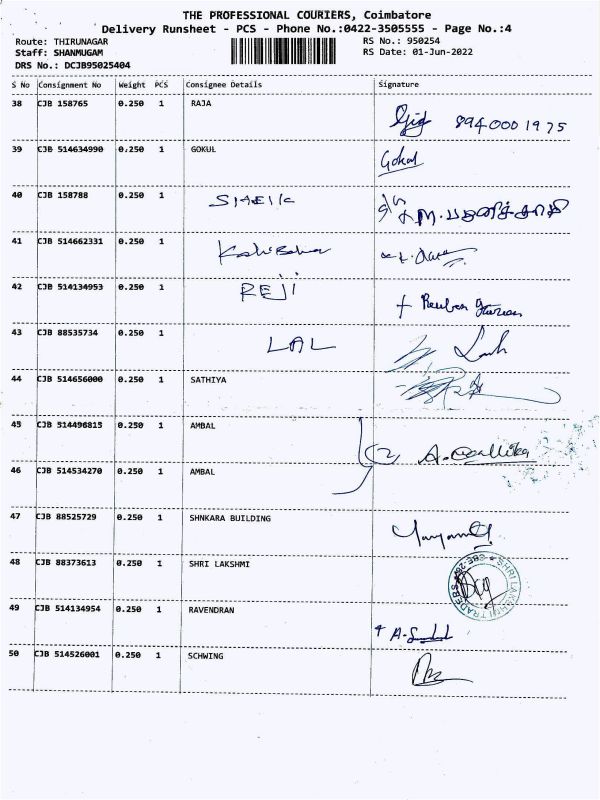 THE PROFESSIONAL COURIERS, Coimbatore
Delivery Runsheet - PCS - Phone No.:0422-3505555 - Page No.:4
Route: THIRUNAGAR
RS No.: 950254
Staff: SHANMUGAM
RS Date: 01-Jun-2022
DRS No.: DCJB95025404
S No Consignment No Weight PCS Consignee Details Signature
38 CJB 158765 0.250 1 RAJA
8940001975
39 CJB 514634990 0.250 1 GOKUL Gokul
40 CJB 158788 0.250 1
41 CJB 514662331 0.250 1
42 CJB 514134953 0.250 1 REJI Reuben
43 CJB 88535734 0.250 1 LAL
44 CJB 514656000 0.250 1 SATHIYA
45 CJB 514496815 0.250 1 AMBAL
2
46 CJB 514534270 0.250 1 AMBAL
47 CJB 88525729 0.250 1 SHNKARA BUILDING
48 CJB 88373613 0.250 1 SHRI LAKSHMI
SHRI LAKSHMI TRADERS
49 CJB 514134954 0.250 1 RAVENDRAN
50 CJB 514526001 0.250 1 SCHWING